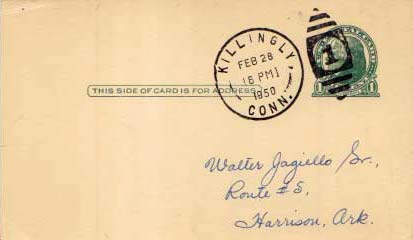 KILLINGLY
FEB 28
16 PM
1950
CONN.
1
THIS SIDE OF CARD IS FOR ADDRESS
1 1
Walter Jagiello Sr.,
Route #5,
Harrison, Ark.